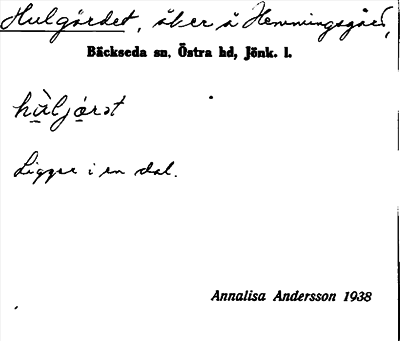 Hulgärdet, åker å Hemmingsgård,
Bäckseda sn, Östra hd, Jönk. l.
hùljǿrət
Ligger i en dal.
Annalisa Andersson 1938